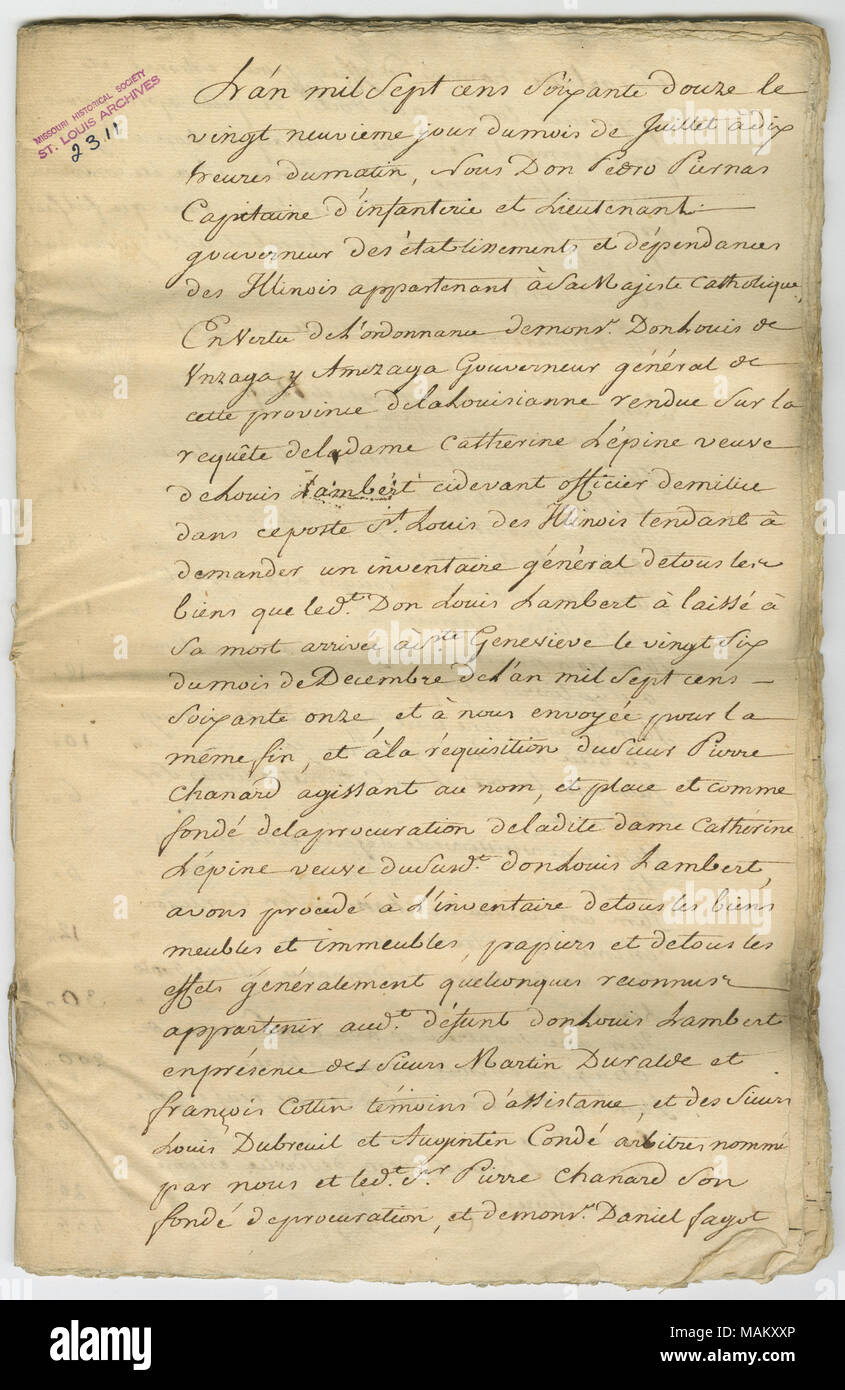 MISSOURI HISTORICAL SOCIETY
ST. LOUIS ARCHIVES
2311
L'an mil Sept cens Soixante douze le
vingt neuvieme jour dumois de Juillet à dix
heures dumatin, Nous Don Pedro Piernas
Capitaine d'infanterie et Lieutenant
gouverneur des établissements et dépendances
des Illinois appartenant à Sa Majeste Catholique,
En Vertu de L'ordonnance demonsr. Don Louis de
Unzaga y Amezaga Gouverneur général de
cette province dela Louisianne rendue Sur la
requête deladame Catherine Lépine veuve
de Louis Lambert cidevant officier demilice
dans ceposte St. Louis des Illinois tendant à
demander un inventaire général detous les
biens que led.t Don Louis Lambert à laissé à
Sa mort arrivée à Ste Genevieve le vingt Six
dumois de Decembre de L'an mil Sept cens
Soixante onze, et à nous envoyée pour la
même fin, et à la réquisition du Sieur Pierre
Chanard agissant au nom, et place et comme
fondé dela procuration de ladite dame Catherine
Lépine veuve du Susd.t don Louis Lambert,
avons procédé à L'inventaire detous les biens
meubles et immeubles, papiers et detous les
effets généralement quelconques reconnus
appartenir aud.t défunt don Louis Lambert
enprésence des Sieurs Martin Duralde et
françois Cottin témoins d'assistance, et des Sieurs
Louis Dubreuil et Auguintin Condé arbitres nommé
par nous et led.t Sr Pierre Chanard Son
fondé deprocuration, et demonsr. Daniel fagot
alamy
Image ID: MAKXXP
www.alamy.com